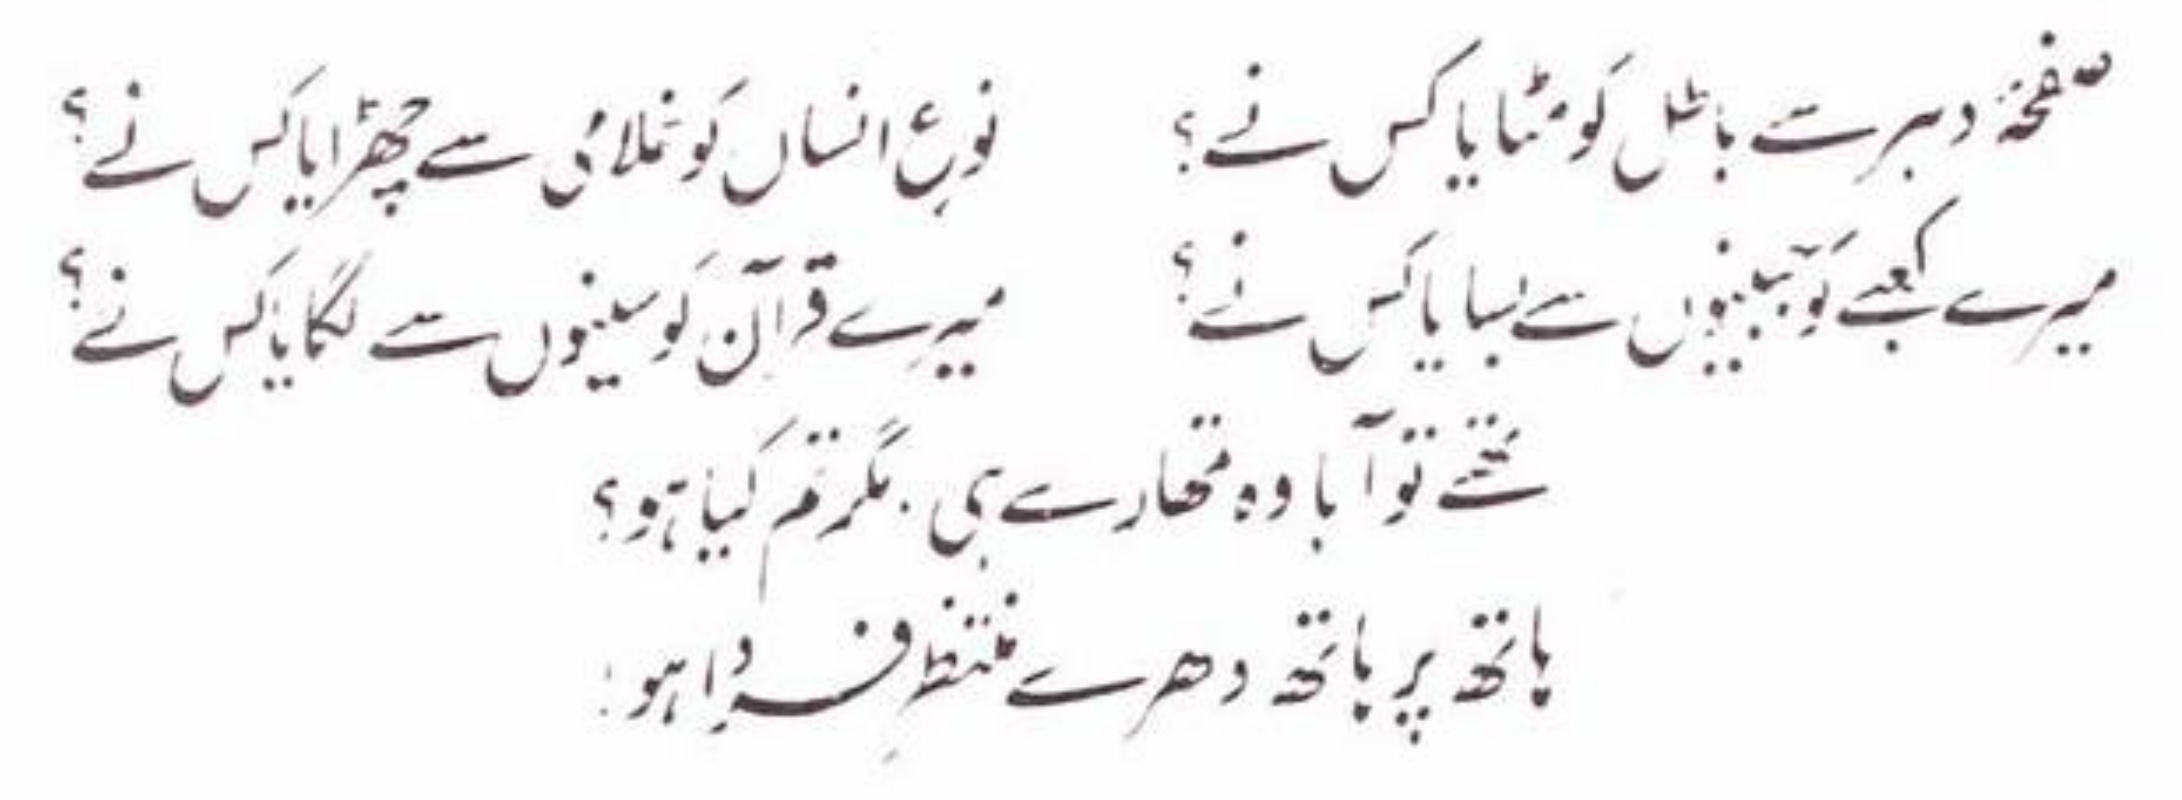 صفحۂ دہر سے باطل کو مٹایا کس نے؟ نوعِ انساں کو غلامی سے چھڑایا کس نے؟
میرے کعبے کو جبینوں سے بسایا کس نے؟ میرے قرآن کو سینوں سے لگایا کس نے؟
تھے تو آبا وہ تمھارے ہی، مگر تم کیا ہو؟
ہاتھ پر ہاتھ دھرے منتظرِ فردا ہو!